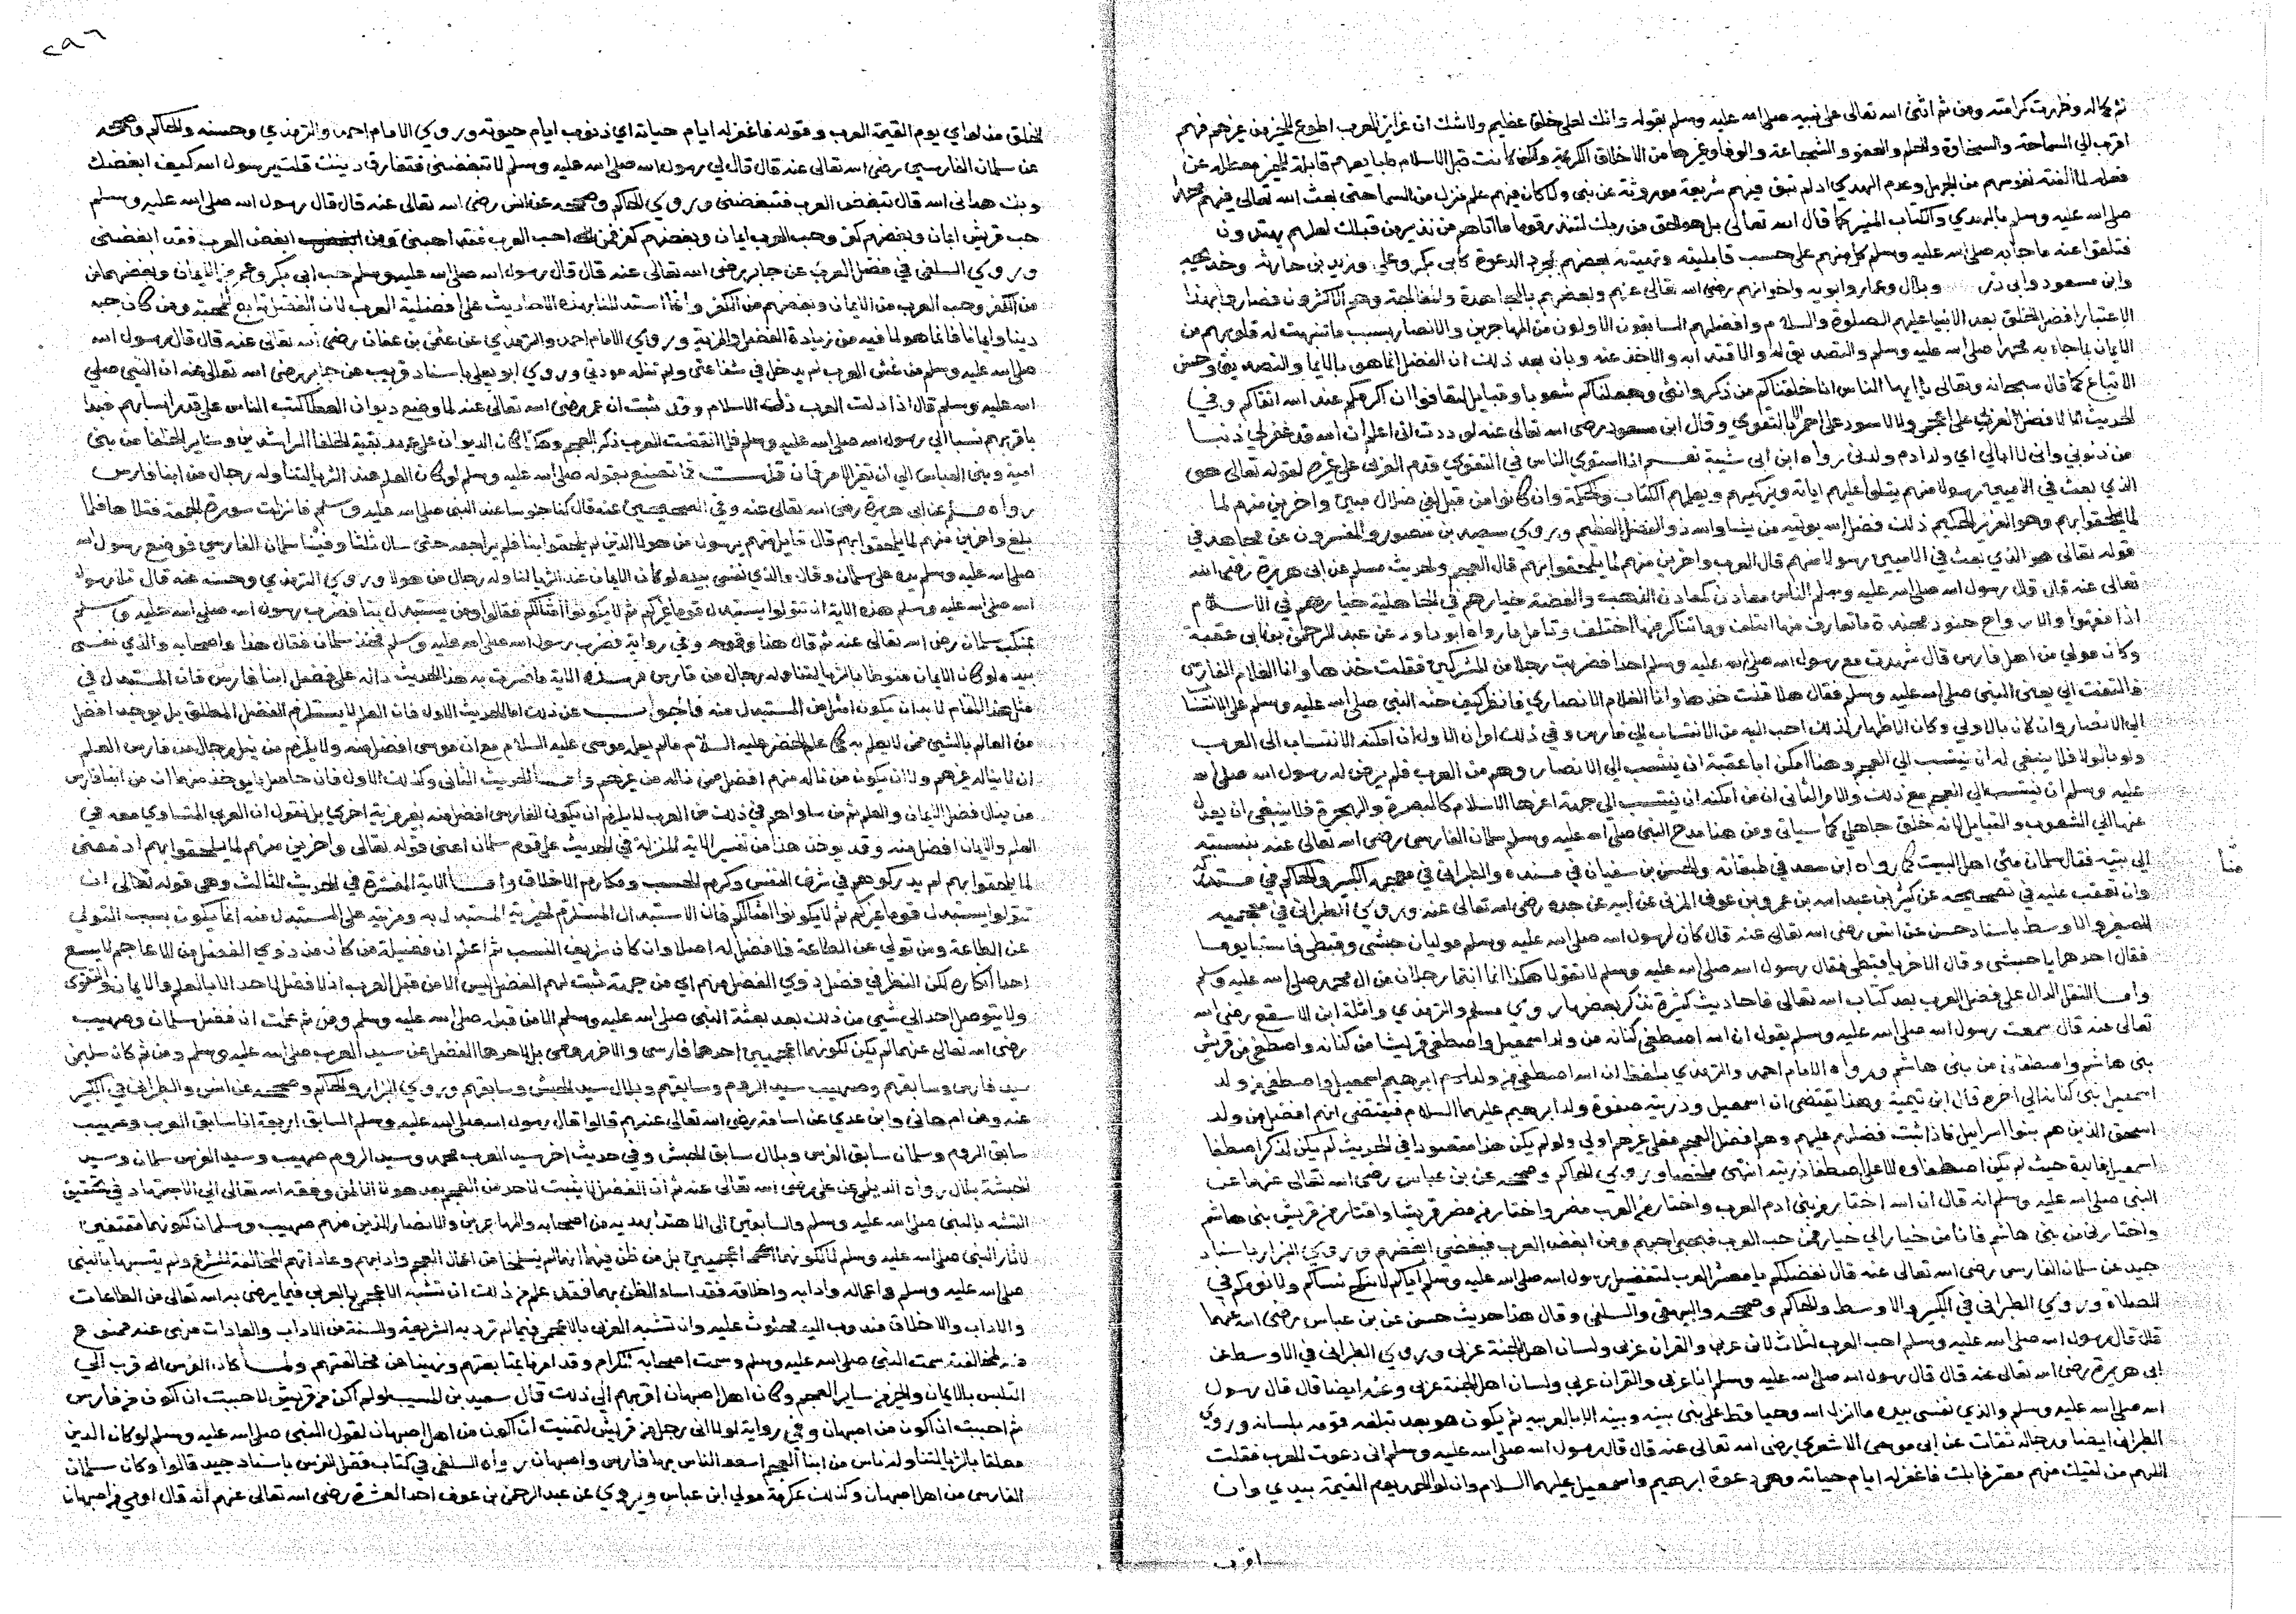 ثم كماله وظهرت كرامته ومن ثم اثنى الله تعالى على نبيه صلى الله عليه وسلم بقوله وانك لعلى خلق عظيم ولا شك ان غرايز العرب اطوع للخير من غيرهم فهم
اقرب الى السماحة والسخاوة والحلم والعفو والشجاعة والوفا وغيرها من الاخلاق الكريمة ولكن كانت قبل الاسلام طبايعهم قابلة للخير معطلة عن
فعله لما الفته نفوسهم من الجهل وعدم الهدي اذ لم تبق فيهم شريعة موروثة عن نبي ولا كان فيهم علم منزل من السما حتى بعث الله تعالى فيهم محمدا
صلى الله عليه وسلم بالهدي والكتاب المنير كما قال الله تعالى بل هو الحق من ربك لتنذر قوما ما اتاهم من نذير من قبلك لعلهم يهتدون
فتلقوا عنه ما جا به صلى الله عليه وسلم كل منهم على حسب قابليته وتهيئه بعضهم بمجرد الدعوة كابي بكر وعلي وزيد بن حارثة وخديجة
وابن مسعود وابي ذر وبلال وعمار وابويه واخوانهم رضي الله تعالى عنهم وبعضهم بالمجاهدة والمعالجة وهم الاكثرون فصاروا بهذا
الاعتبار افضل الخلق بعد الانبيا عليهم الصلوة والسلام وافضلهم السابقون الاولون من المهاجرين والانصار بسبب ما تهيات له قلوبهم من
الايمان بما جاء به محمد صلى الله عليه وسلم والتصديق له والاقتدا به والاخذ عنه وبان بعد ذلك ان الفضل انما هو بالايمان والتصديق وحسن
الاتباع كما قال سبحانه وتعالى يا ايها الناس انا خلقناكم من ذكر وانثى وجعلناكم شعوبا وقبايل لتعارفوا ان اكرمكم عند الله اتقاكم وفي
الحديث الا لا فضل لعربي على عجمي ولا لاسود على احمر الا بالتقوي وقال ابن مسعود رضي الله تعالى عنه لوددت اني اعلم ان الله قد غفر لي ذنبا
من ذنوبي واني لا ابالي اي ولد ادم ولدني رواه ابن ابي شيبة نعم اذا استوي الناس في التقوي قدم العربي على غيره لقوله تعالى هو
الذي بعث في الاميين رسولا منهم يتلوا عليهم اياته ويزكيهم ويعلمهم الكتاب والحكمة وان كانوا من قبل لفي ضلال مبين واخرين منهم لما
يلحقوا بهم وهو العزيز الحكيم ذلك فضل الله يوتيه من يشا والله ذو الفضل العظيم وروي سعيد بن منصور والمفسرون عن مجاهد في
قوله تعالى هو الذي بعث في الاميين رسولا منهم قال العرب واخرين منهم لما يلحقوا بهم قال العجم ولحديث مسلم عن ابي هريرة رضي الله
تعالى عنه قال قال رسول الله صلى الله عليه وسلم الناس معادن كمعادن الذهب والفضة خيارهم في الجاهلية خيارهم في الاسلام
اذا فقهوا والارواح جنود مجندة ما تعارف منها ائتلف وما تناكر منها اختلف وتامل ما رواه ابو داود عن عبد الرحمن بن ابي عقبة
وكان مولي من اهل فارس قال شهدت مع رسول الله صلى الله عليه وسلم احدا فضربت رجلا من المشركين فقلت خذها وانا الغلام الفارسي
فالتفت الي يعني النبي صلى الله عليه وسلم فقال هلا قلت خذها وانا الغلام الانصاري فانظر كيف حثه النبي صلى الله عليه وسلم على الانتسا
الى الانصار وان كان بالاولي وكان الاظهار لذلك احب اليه من الانتساب الى فارس وفي ذلك الاول ان امكنه الانتساب الى العرب
ولو بالولا فلا ينبغي له ان ينتسب الى العجم وهنا امكن ابا عقبة ان ينتسب الى الانصار وهم من العرب فلم يرض له رسول الله صلى الله
عليه وسلم ان ينتسب الى العجم مع ذلك والامر الثاني ان من امكنه ان ينتسب الى جهة اعزها الاسلام كالنصرة والهجرة فلا ينبغي ان يعدل
عنها الى الشعوب والقبايل لانه خلق جاهلي كما سياتي ومن هنا مدح النبي صلى الله عليه وسلم سلمان الفارسي رضي الله تعالى عنه بنسبته
الى بيته فقال سلمان منا اهل البيت كما رواه ابن سعد في طبقاته والحسن بن سفيان في مسنده والطبراني في معجمه الكبير والحاكم في مستدركه
منا
وان تعقب عليه في تصحيحه عن كثير بن عبد الله بن عمرو بن عوف المزني عن ابيه عن جده رضي الله تعالى عنه وروي الطبراني في معجميه
الصغير والاوسط باسناد حسن عن انس رضي الله تعالى عنه قال كان لرسول الله صلى الله عليه وسلم موليان حبشي وقبطي فاستبا يوما
فقال احدهما يا حبشي وقال الاخر يا قبطي فقال رسول الله صلى الله عليه وسلم لا تقولا هكذا انما انتما رجلان من ال محمد صلى الله عليه وسلم
واما النقل الدال على فضل العرب بعد كتاب الله تعالى فاحاديث كثيرة نذكر بعضها روي مسلم والترمذي واثلة ابن الاسقع رضي الله
تعالى عنه قال سمعت رسول الله صلى الله عليه وسلم يقول ان الله اصطفى كنانة من ولد اسمعيل واصطفى قريشا من كنانة واصطفى من قريش
بني هاشم واصطفاني من بني هاشم ورواه الامام احمد والترمذي بلفظ ان الله اصطفى من ولد ادم ابرهيم اسمعيل واصطفى من ولد
اسمعيل بني كنانة الى اخره قال ابن تيمية وهذا يقتضي ان اسمعيل وذريته صفوة ولد ابرهيم عليهما السلام فيقتضي انهم افضل من ولد
اسحق الذين هم بنوا اسرايل فاذا ثبت فضلهم عليهم وهم افضل العجم فعلى غيرهم اولي ولو لم يكن هذا مقصودا في الحديث لم يكن لذكر اصطفا
اسمعيل فايدة حيث لم يكن اصطفاوه الا على اصطفا ذريته انتهى ملخصا وروي الحاكم وصححه عن بن عباس رضي الله تعالى عنهما عن
النبي صلى الله عليه وسلم انه قال ان الله اختار من بني ادم العرب واختار من العرب مضر واختار من مضر قريشا واختار من قريش بني هاشم
واختارني من بني هاشم فانا من خيار الى خيار فمن حب العرب فبحبي احبهم ومن ابغض العرب فببغضي ابغضهم وروي البزار باسناد
جيد عن سلمان الفارسي رضي الله تعالى عنه قال نفضلكم يا معشر العرب لتفضيل رسول الله صلى الله عليه وسلم اياكم لا ننكح نساكم ولا نومكم في
الصلاة وروي الطبراني في الكبير والاوسط والحاكم وصححه والبيهقي والسلفي وقال هذا حديث حسن عن بن عباس رضي الله عنهما
قال قال رسول الله صلى الله عليه وسلم احب العرب لثلاث لاني عربي والقران عربي ولسان اهل الجنة عربي وروي الطبراني في الاوسط عن
ابي هريرة رضي الله تعالى عنه قال قال رسول الله صلى الله عليه وسلم انا عربي والقران عربي ولسان اهل الجنة عربي وعنه ايضا قال قال رسول
الله صلى الله عليه وسلم والذي نفسي بيده ما انزل الله وحيا قط على نبي بينه وبينه الا بالعربية ثم يكون هو بعد تبلغه قومه بلسانه وروي
الطبراني ايضا ورجاله ثقات عن ابي موسى الاشعري رضي الله تعالى عنه قال قال رسول الله صلى الله عليه وسلم اني دعوت للعرب فقلت
اللهم من لقيك منهم معترفا بك فاغفر له ايام حياته وهي دعوة ابرهيم واسمعيل عليهما السلام وان لوا الحمد يوم القيمة بيدي وان
اقرب
٢٩٦
الخلق من لواي يوم القيمة العرب وقوله فاغفر له ايام حياته اي ذنوب ايام حيوته وروي الامام احمد والترمذي وحسنه والحاكم وصححه
عن سلمان الفارسي رضي الله تعالى عنه قال قال لي رسول الله صلى الله عليه وسلم لا تبغضني فتفارق دينك قلت يرسول الله كيف ابغضك
وبك هداني الله قال تبغض العرب فتبغضني وروي الحاكم وصححه عن انس رضي الله تعالى عنه قال قال رسول الله صلى الله عليه وسلم
حب قريش ايمان وبغضهم كفر وحب العرب ايمان وبغضهم كفر فمن احب العرب فقد احبني ومن ابغض العرب فقد ابغضني
وروي السلفي في فضل العرب عن جابر رضي الله تعالى عنه قال قال رسول الله صلى الله عليه وسلم حب ابي بكر وعمر من الايمان وبغضهما من
من الكفر وحب العرب من الايمان وبغضهم من الكفر وانما استدللنا بهذه الاحاديث على افضلية العرب لان الفضل تابع للمحبة ومن كان حبه
دينا وايمانا فانما هو لما فيه من زيادة الفضل والمزية وروي الامام احمد والترمذي عن عثمن بن عفان رضي الله تعالى عنه قال قال رسول الله
صلى الله عليه وسلم من غش العرب لم يدخل في شفاعتي ولم تنله مودتي وروي ابو يعلى باسناد قريب عن جابر رضي الله تعالى عنه ان النبي صلى
الله عليه وسلم قال اذا ذلت العرب ذل الاسلام وقد ثبت ان عمر رضي الله تعالى عنه لما وضع ديوان العطا كتب الناس على قدر انسابهم فبدا
باقربهم نسبا الى رسول الله صلى الله عليه وسلم فلما انقضت العرب ذكر العجم وهكذا كان الديوان على عهد بقية الخلفا الراشدين وساير الخلفا من بني
امية وبني العباس الى ان تغير الامر فان قلت فما تصنع بقوله صلى الله عليه وسلم لو كان العلم عند الثريا لتناوله رجال من ابنا فارس
رواه مسلم عن ابي هريرة رضي الله تعالى عنه وفي الصحيحين عنه قال كنا جلوسا عند النبي صلى الله عليه وسلم فانزلت سورة الجمعة فتلاها فلما
بلغ واخرين منهم لما يلحقوا بهم قال قايل منهم يرسول من هولا الذين لم يلحقوا بنا فلم يراجعه حتى سال ثلثا وفينا سلمان الفارسي فوضع رسول الله
صلى الله عليه وسلم يده على سلمان وقال والذي نفسي بيده لو كان الايمان عند الثريا لناوله رجال من هولا وروي الترمذي وحسنه عنه قال تلا رسول
الله صلى الله عليه وسلم هذه الاية ان تتولوا يستبدل قوما غيركم ثم لا يكونوا امثالكم فقالوا ومن يستبدل بنا فضرب رسول الله صلى الله عليه وسلم
بمنكب سلمان رضي الله تعالى عنه ثم قال هذا وقومه وفي رواية فضرب رسول الله صلى الله عليه وسلم فخذ سلمان فقال هذا واصحابه والذي نفسي
بيده لو كان الايمان منوطا بالثريا لتناوله رجال من فارس فهذه الاية وما فسرت به هذا الحديث دالة على فضل ابنا فارس فان المستبدل في
مثل هذا المقام لا بد ان يكون امثل من المستبدل منه فالجواب عن ذلك اما الحديث الاول فان العلم لا يستلزم الفضل المطلق بل يوجد افضل
من العالم بالشي ممن لا يعلم به كما علم الخضر عليه السلام مالم يعلمه موسى عليه السلام مع ان موسى افضل منه ولا يلزم من نيل رجال من فارس العلم
ان لا يناله غيرهم ولا ان يكون من ناله منهم افضل ممن ناله من غيرهم واما الحديث الثاني وكذلك الاول فان حاصل ما يوخذ منهما ان من ابنا فارس
من ينال فضل الايمان والعلم ثم من ساواهم في ذلك من العرب لا يلزم ان يكون الفارسي افضل منه بغير مزية اخري بل نقول ان العربي المتساوي معه في
العلم والايمان افضل منه وقد يوخذ هذا من تفسير الاية المنزلة في الحديث على قوم سلمان اعني قوله تعالى واخرين منهم لما يلحقوا بهم اذ معنى
لما يلحقوا بهم لم يدركوهم في شرف النفس وكرم الحسب ومكارم الاخلاق واما الاية المفسرة في الحديث الثالث وهي قوله تعالى ان
تتولوا يستبدل قوما غيركم ثم لا يكونوا امثالكم فان الاستبدال المستلزم لخيرية المستبدل به ومزيته على المستبدل منه انما يكون بسبب التولي
عن الطاعة ومن تولي عن الطاعة فلا فضل له اصلا وان كان شريف النسب ثم اعلم ان فضيلة من كان من ذوي الفضل من الاعاجم لا يسع
احدا انكاره لكن النظر في فضل ذوي الفضل منهم اي من جهة ثبت لهم الفضل ليس الا من قبل العرب اذ لا فضل لاحد الا بالعلم والايمان والتقوي
ولا يتوصل احد الى شي من ذلك بعد بعثة النبي صلى الله عليه وسلم الا من قبله صلى الله عليه وسلم ومن ثم علمت ان فضل سلمان وصهيب
رضي الله تعالى عنهما لم يكن لكونهما اعجميين احدهما فارسي والاخر رومي بل لاخذهما الفضل عن سيد العرب صلى الله عليه وسلم ومن ثم كان سلمان
سيد فارس وسابقهم وصهيب سيد الروم وسابقهم وبلال سيد الحبش وسابقهم وروي البزار والحاكم وصححه عن انس والطبراني في الكبير
عنه وعن ام هاني وابن عدي عن اسامة رضي الله تعالى عنهم قالوا قال رسول الله صلى الله عليه وسلم السابق اربعة انا سابق العرب وصهيب
سابق الروم وسلمان سابق الفرس وبلال سابق الحبش وفي حديث اخر سيد العرب محمد وسيد الروم صهيب وسيد الفرس سلمان وسيد
الحبشة بلال رواه الديلمي عن علي رضي الله تعالى عنه ثم ان الفضل لا يثبت لاحد من العجم بعد هولا الا لمن وفقه الله تعالى الى الاجتهاد في تحقيق
التشبه بالنبي صلى الله عليه وسلم والسابقين الى الاهتدا بهديه من اصحابه والمهاجرين والانصار الذين منهم صهيب وسلمان لكونهما مقتفيين
لاثار النبي صلى الله عليه وسلم لا لكونهما اعجميين بل من ظن فيهما انهما لم ينسلخا من اعمال العجم وادابهم وعاداتهم المخالفة للشرع ولم يتشبها بالنبي
صلى الله عليه وسلم واعماله وادابه واخلاقه فقد اساء الظن بهما فقد علم من ذلك ان تشبه الاعجمي بالعربي فيما يرضي به الله تعالى من الطاعات
والاداب والاخلاق مندوب اليه محثوث عليه وان تشبه العربي بالاعجمي فيما لم ترد به الشريعة والسنة من الاداب والعادات منهي عنه ممنوع
منه لمخالفته سمت النبي صلى الله عليه وسلم وسمت اصحابه الكرام وقد امرنا بمتابعتهم ونهينا عن مخالفتهم ولما كان الفرس اقرب الى
التلبس بالايمان والخير من ساير العجم وكان اهل اصبهان اقربهم الى ذلك قال سعيد بن المسيب لو لم اكن من قريش لاحببت ان اكون من فارس
ثم احببت ان اكون من اصبهان وفي رواية لولا اني رجل من قريش لتمنيت ان اكون من اهل اصبهان لقول النبي صلى الله عليه وسلم لو كان الدين
معلقا بالثريا لتناوله ناس من ابنا العجم اسعد الناس بها فارس واصبهان رواه السلفي في كتاب فضل الفرس باسناد جيد قالوا وكان سلمان
الفارسي من اهل اصبهان وكذلك عكرمة مولي ابن عباس ويروي عن عبد الرحمن بن عوف احد العشرة رضي الله تعالى عنهم انه قال اوي من اصبهان